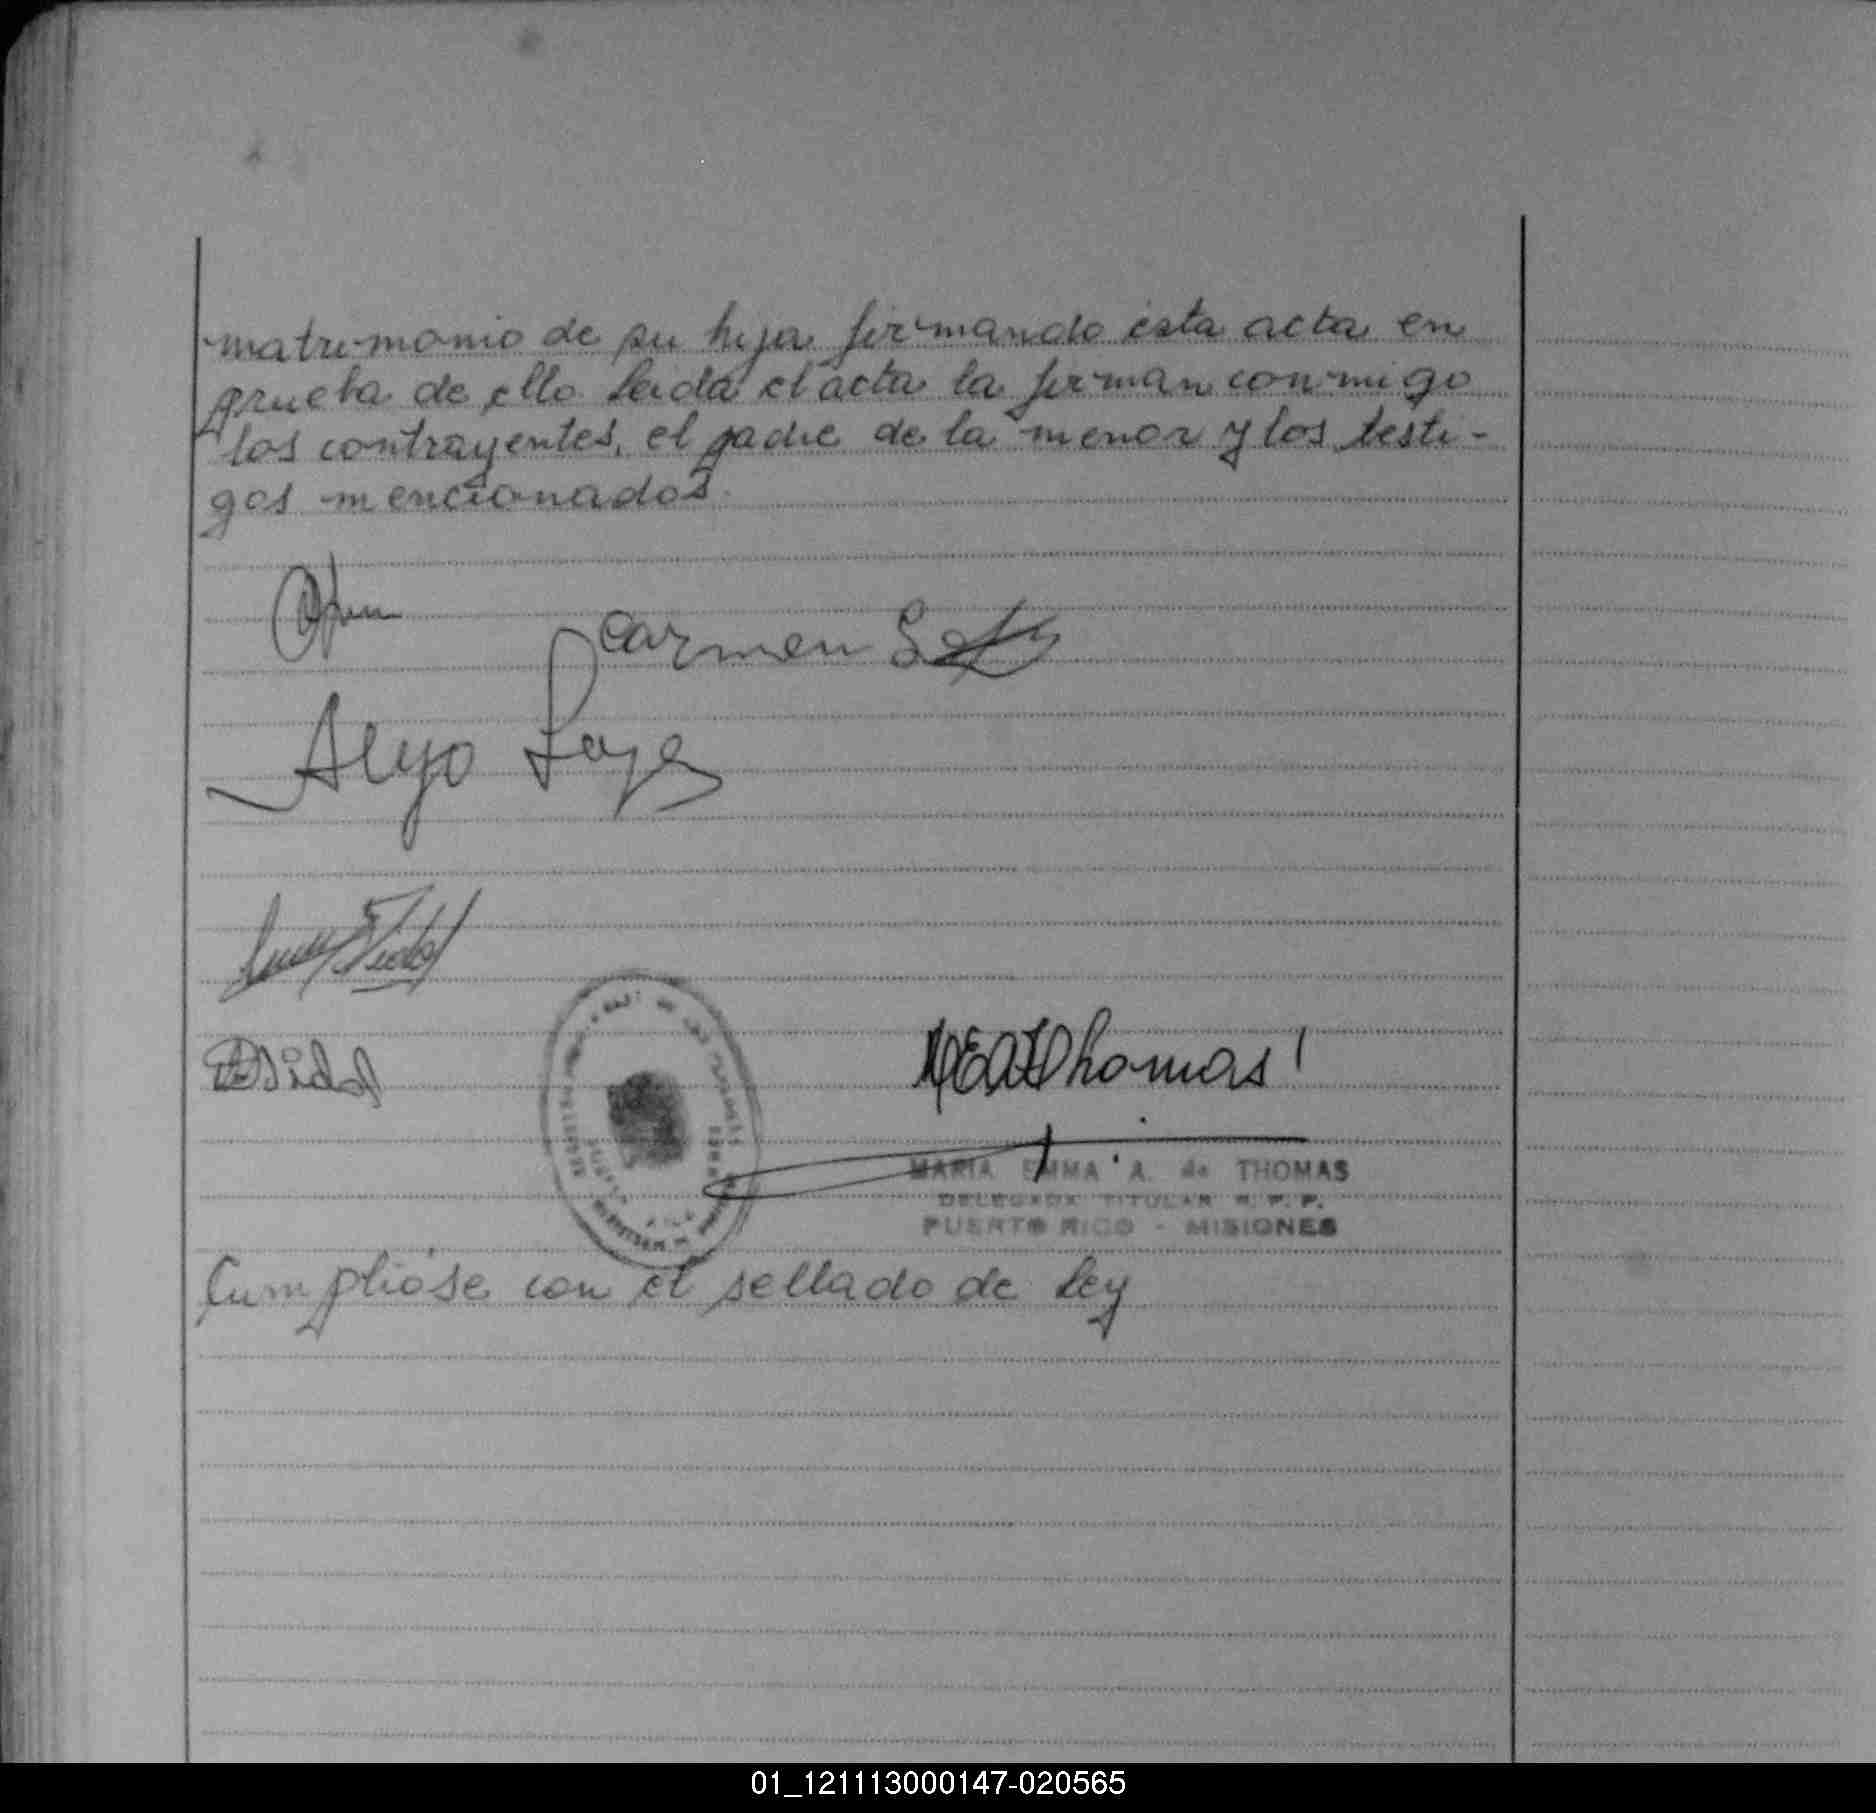 matrimonio de su hija firmando ésta acta en
prueba de ello. Leida el acta la firman conmigo
los contrayentes, el padre de la menor y los testi-
gos mencionados.
Carmen
Alejo
Vidal
Vidal
MEAThomas
MARIA EMMA A. de THOMAS
DELEGADA TITULAR R. P. P.
PUERTO RICO - MISIONES
Cumplióse con el sellado de Ley
01_121113000147-020565